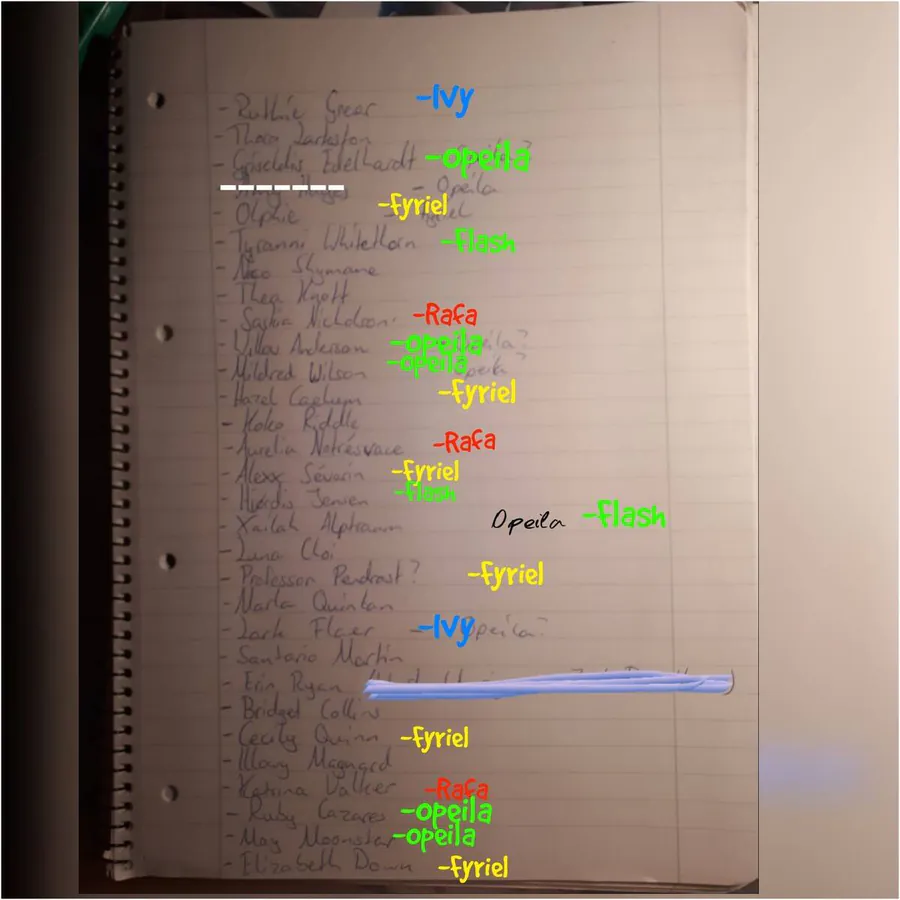 - Ruthie Grear -Ivy
- Thora Larkston
- Griseldis Edelhardt -opeila
- Opeila
- Olphie -fyriel
- Tyranni Whitethorn -flash
- Nico Shymane
- Thea Knott
- Saskia Nicholson -Rafa
- Willow Anderson -opeila
- Mildred Wilson -opeila
- Hazel -fyriel
- Koko Riddle
- Aurelia -Rafa
- Alexx Séverin -fyriel
- Hjørdis Jensen -flash
- Xailah Alptraum Opeila -flash
- Luna Choi
- Professor Pendrast? -fyriel
- Marla Quinlan
- Lark Flaer -Ivy Opeila?
- Santorio Martin
- Erin Ryan
- Bridget Collins
- Cecily Quinn -fyriel
- Illary Magnard
- Katrina Walker -Rafa
- Ruby Cazares -opeila
- May Moonstar -opeila
- Elizabeth Down -fyriel